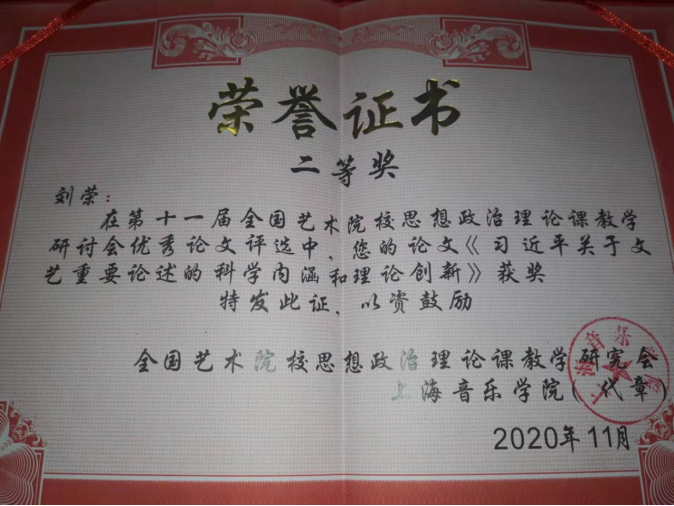 荣誉证书
二等奖
刘荣：
在第十一届全国艺术院校思想政治理论课教学
研讨会优秀论文评选中，您的论文《习近平关于文
艺重要论述的科学内涵和理论创新》获奖
特发此证，以资鼓励
全国艺术院校思想政治理论课教学研究会
上海音乐学院（代章）
2020年11月